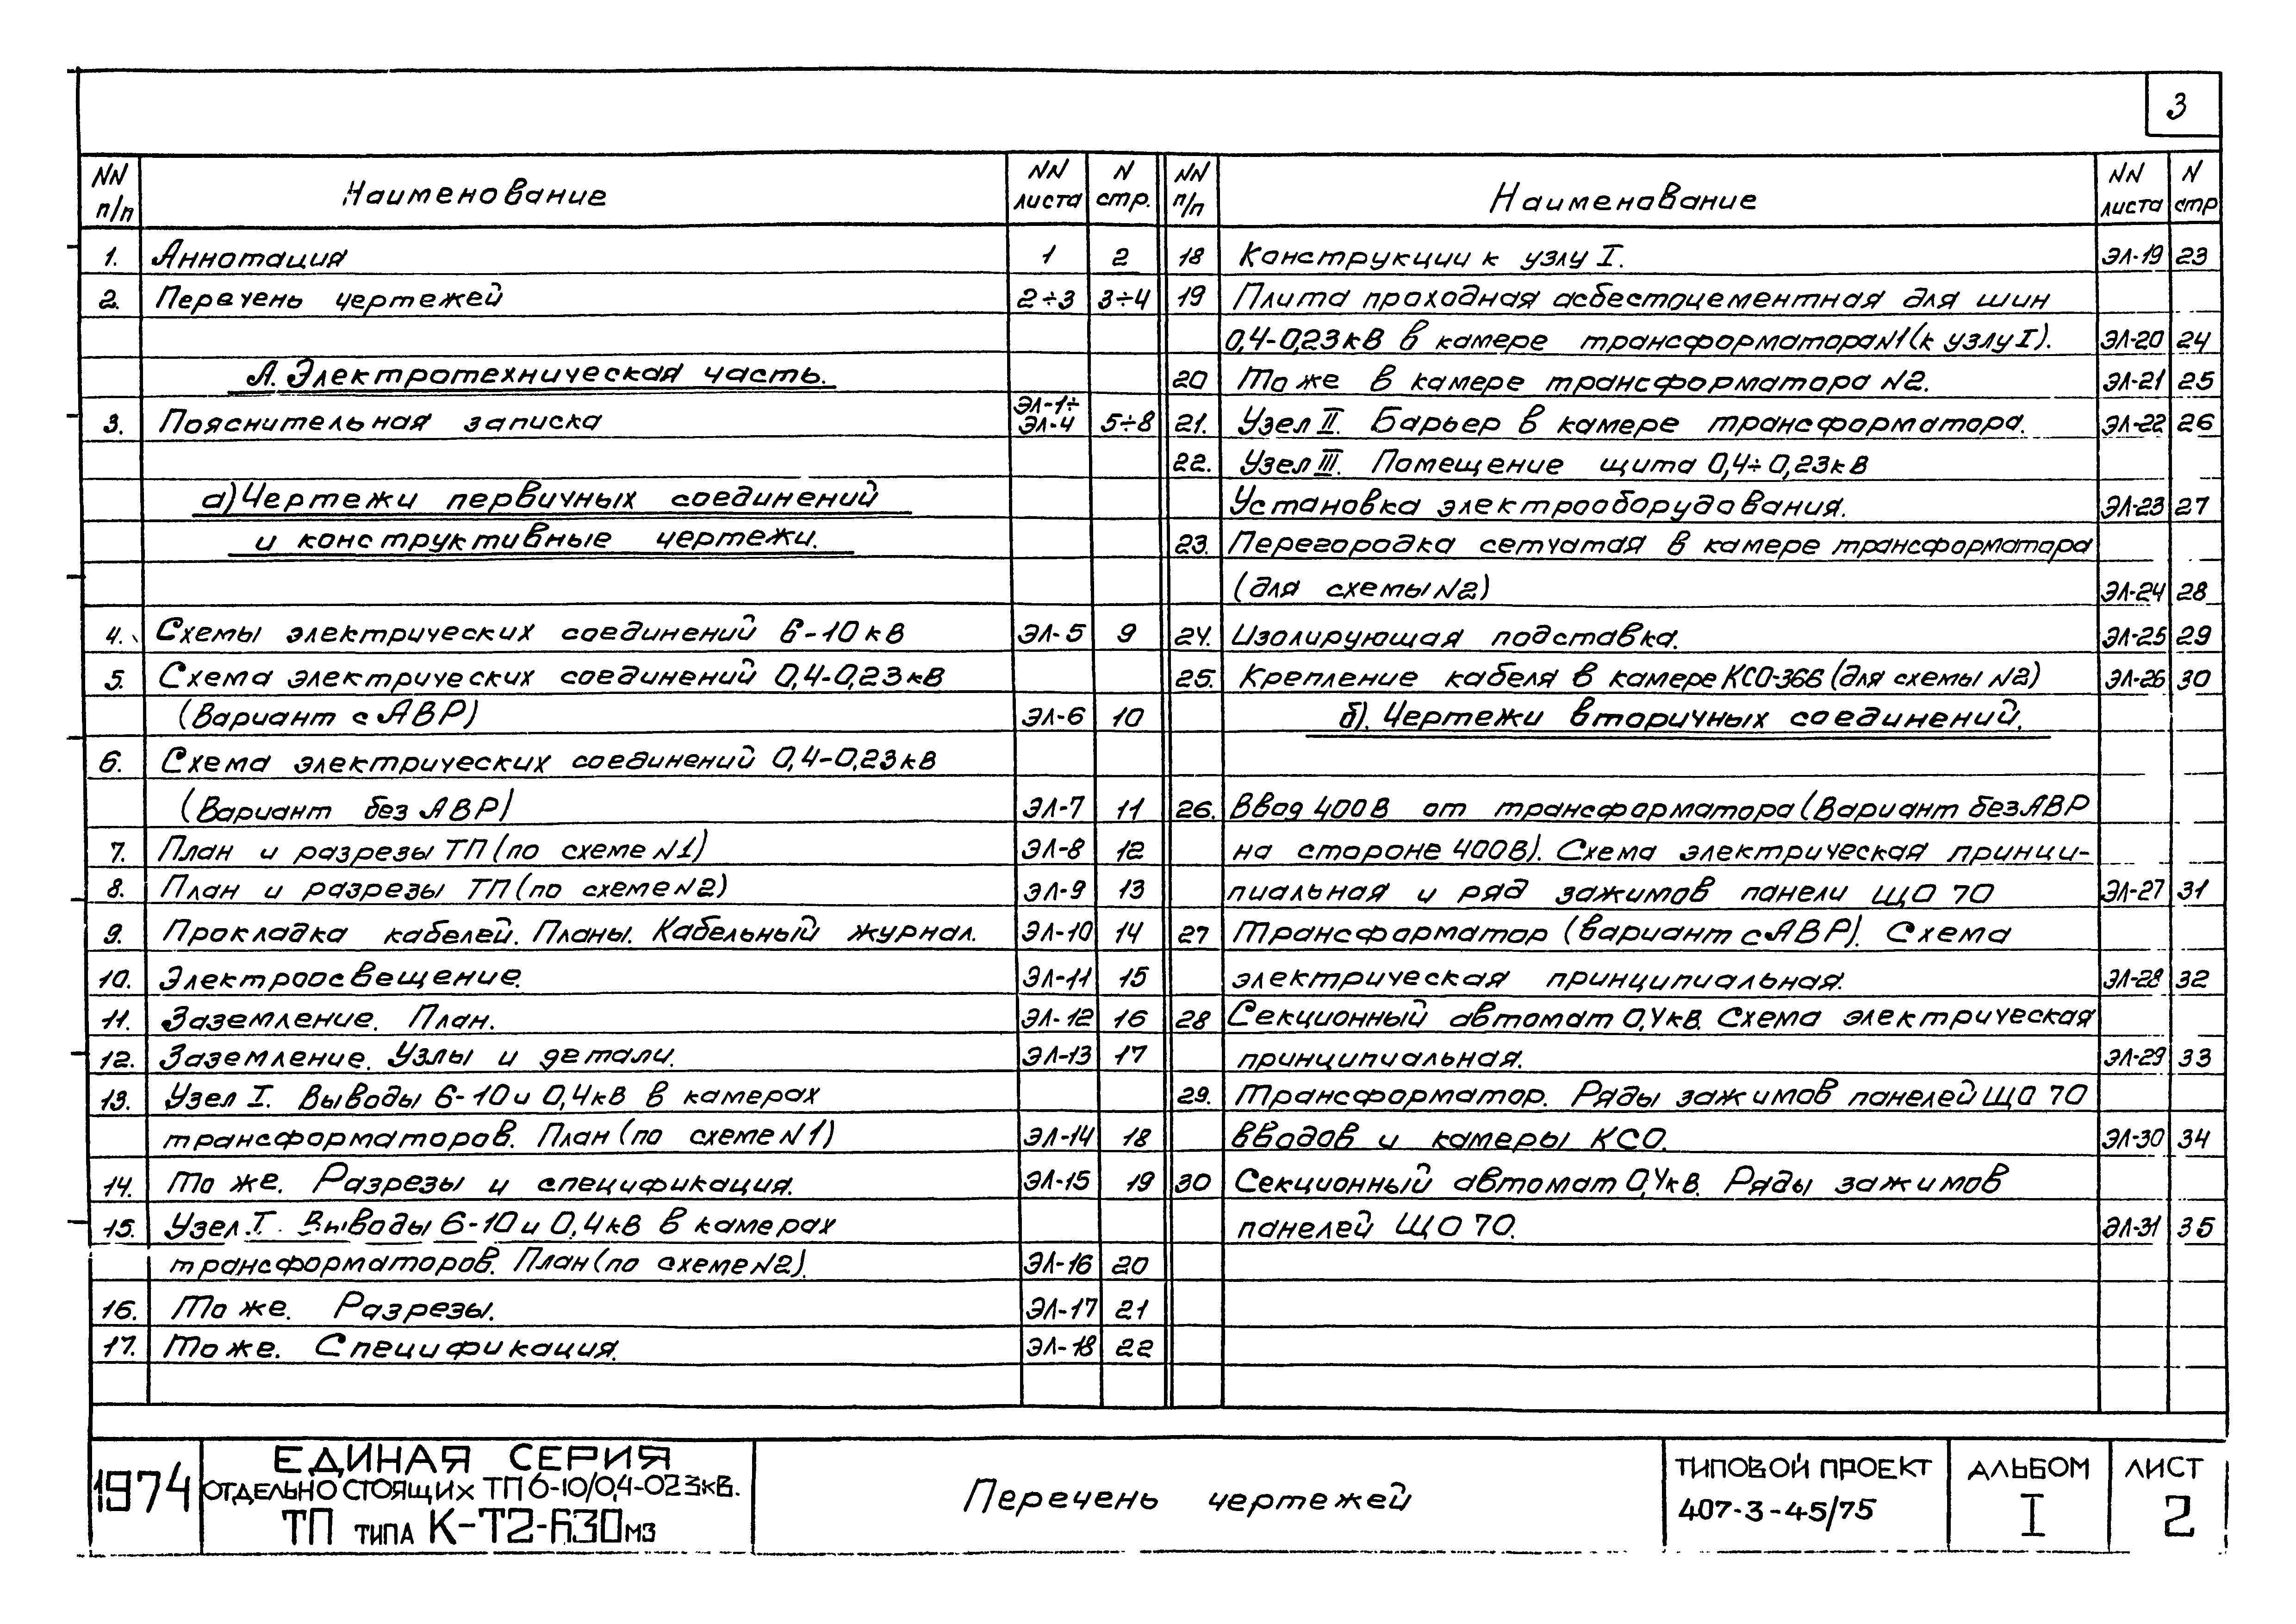 3
NN п/п Наименование NN листа N стр.
1. Аннотация 1 2
2. Перечень чертежей 2÷3 3÷4
А. Электротехническая часть.
3. Пояснительная записка ЭЛ-1÷ ЭЛ-4 5÷8
а) Чертежи первичных соединений
и конструктивные чертежи.
4. Схемы электрических соединений 6-10кВ ЭЛ-5 9
5. Схема электрических соединений 0,4-0,23кВ
(Вариант с АВР) ЭЛ-6 10
6. Схема электрических соединений 0,4-0,23кВ
(Вариант без АВР) ЭЛ-7 11
7. План и разрезы ТП (по схеме N1) ЭЛ-8 12
8. План и разрезы ТП (по схеме N2) ЭЛ-9 13
9. Прокладка кабелей. Планы. Кабельный журнал. ЭЛ-10 14
10. Электроосвещение. ЭЛ-11 15
11. Заземление. План. ЭЛ-12 16
12. Заземление. Узлы и детали. ЭЛ-13 17
13. Узел I. Выводы 6-10 и 0,4кВ в камерах
трансформаторов. План (по схеме N1) ЭЛ-14 18
14. То же. Разрезы и спецификация. ЭЛ-15 19
15. Узел I. Выводы 6-10 и 0,4кВ в камерах
трансформаторов. План (по схеме N2). ЭЛ-16 20
16. То же. Разрезы. ЭЛ-17 21
17. То же. Спецификация. ЭЛ-18 22
NN п/п Наименование NN листа N стр
18 Конструкции к узлу I. ЭЛ-19 23
19 Плита проходная асбестоцементная для шин
0,4-0,23кВ в камере трансформатора N1 (к узлу I). ЭЛ-20 24
20 То же в камере трансформатора N2. ЭЛ-21 25
21. Узел II. Барьер в камере трансформатора. ЭЛ-22 26
22. Узел III. Помещение щита 0,4÷0,23кВ
Установка электрооборудования. ЭЛ-23 27
23. Перегородка сетчатая в камере трансформатора
(для схемы N2) ЭЛ-24 28
24. Изолирующая подставка. ЭЛ-25 29
25. Крепление кабеля в камере КСО-366 (для схемы N2) ЭЛ-26 30
б). Чертежи вторичных соединений.
26. Ввод 400В от трансформатора (Вариант без АВР
на стороне 400В). Схема электрическая принци-
пиальная и ряд зажимов панели ЩО 70 ЭЛ-27 31
27 Трансформатор (вариант с АВР). Схема
электрическая принципиальная. ЭЛ-28 32
28 Секционный автомат 0,4кВ. Схема электрическая
принципиальная. ЭЛ-29 33
29. Трансформатор. Ряды зажимов панелей ЩО 70
вводов и камеры КСО. ЭЛ-30 34
30 Секционный автомат 0,4кВ. Ряды зажимов
панелей ЩО 70. ЭЛ-31 35
1974
ЕДИНАЯ СЕРИЯ
ОТДЕЛЬНО СТОЯЩИХ ТП 6-10/0,4-023кВ.
ТП ТИПА К-Т2-630М3
Перечень чертежей
ТИПОВОЙ ПРОЕКТ
407-3-45/75
АЛЬБОМ
I
ЛИСТ
2